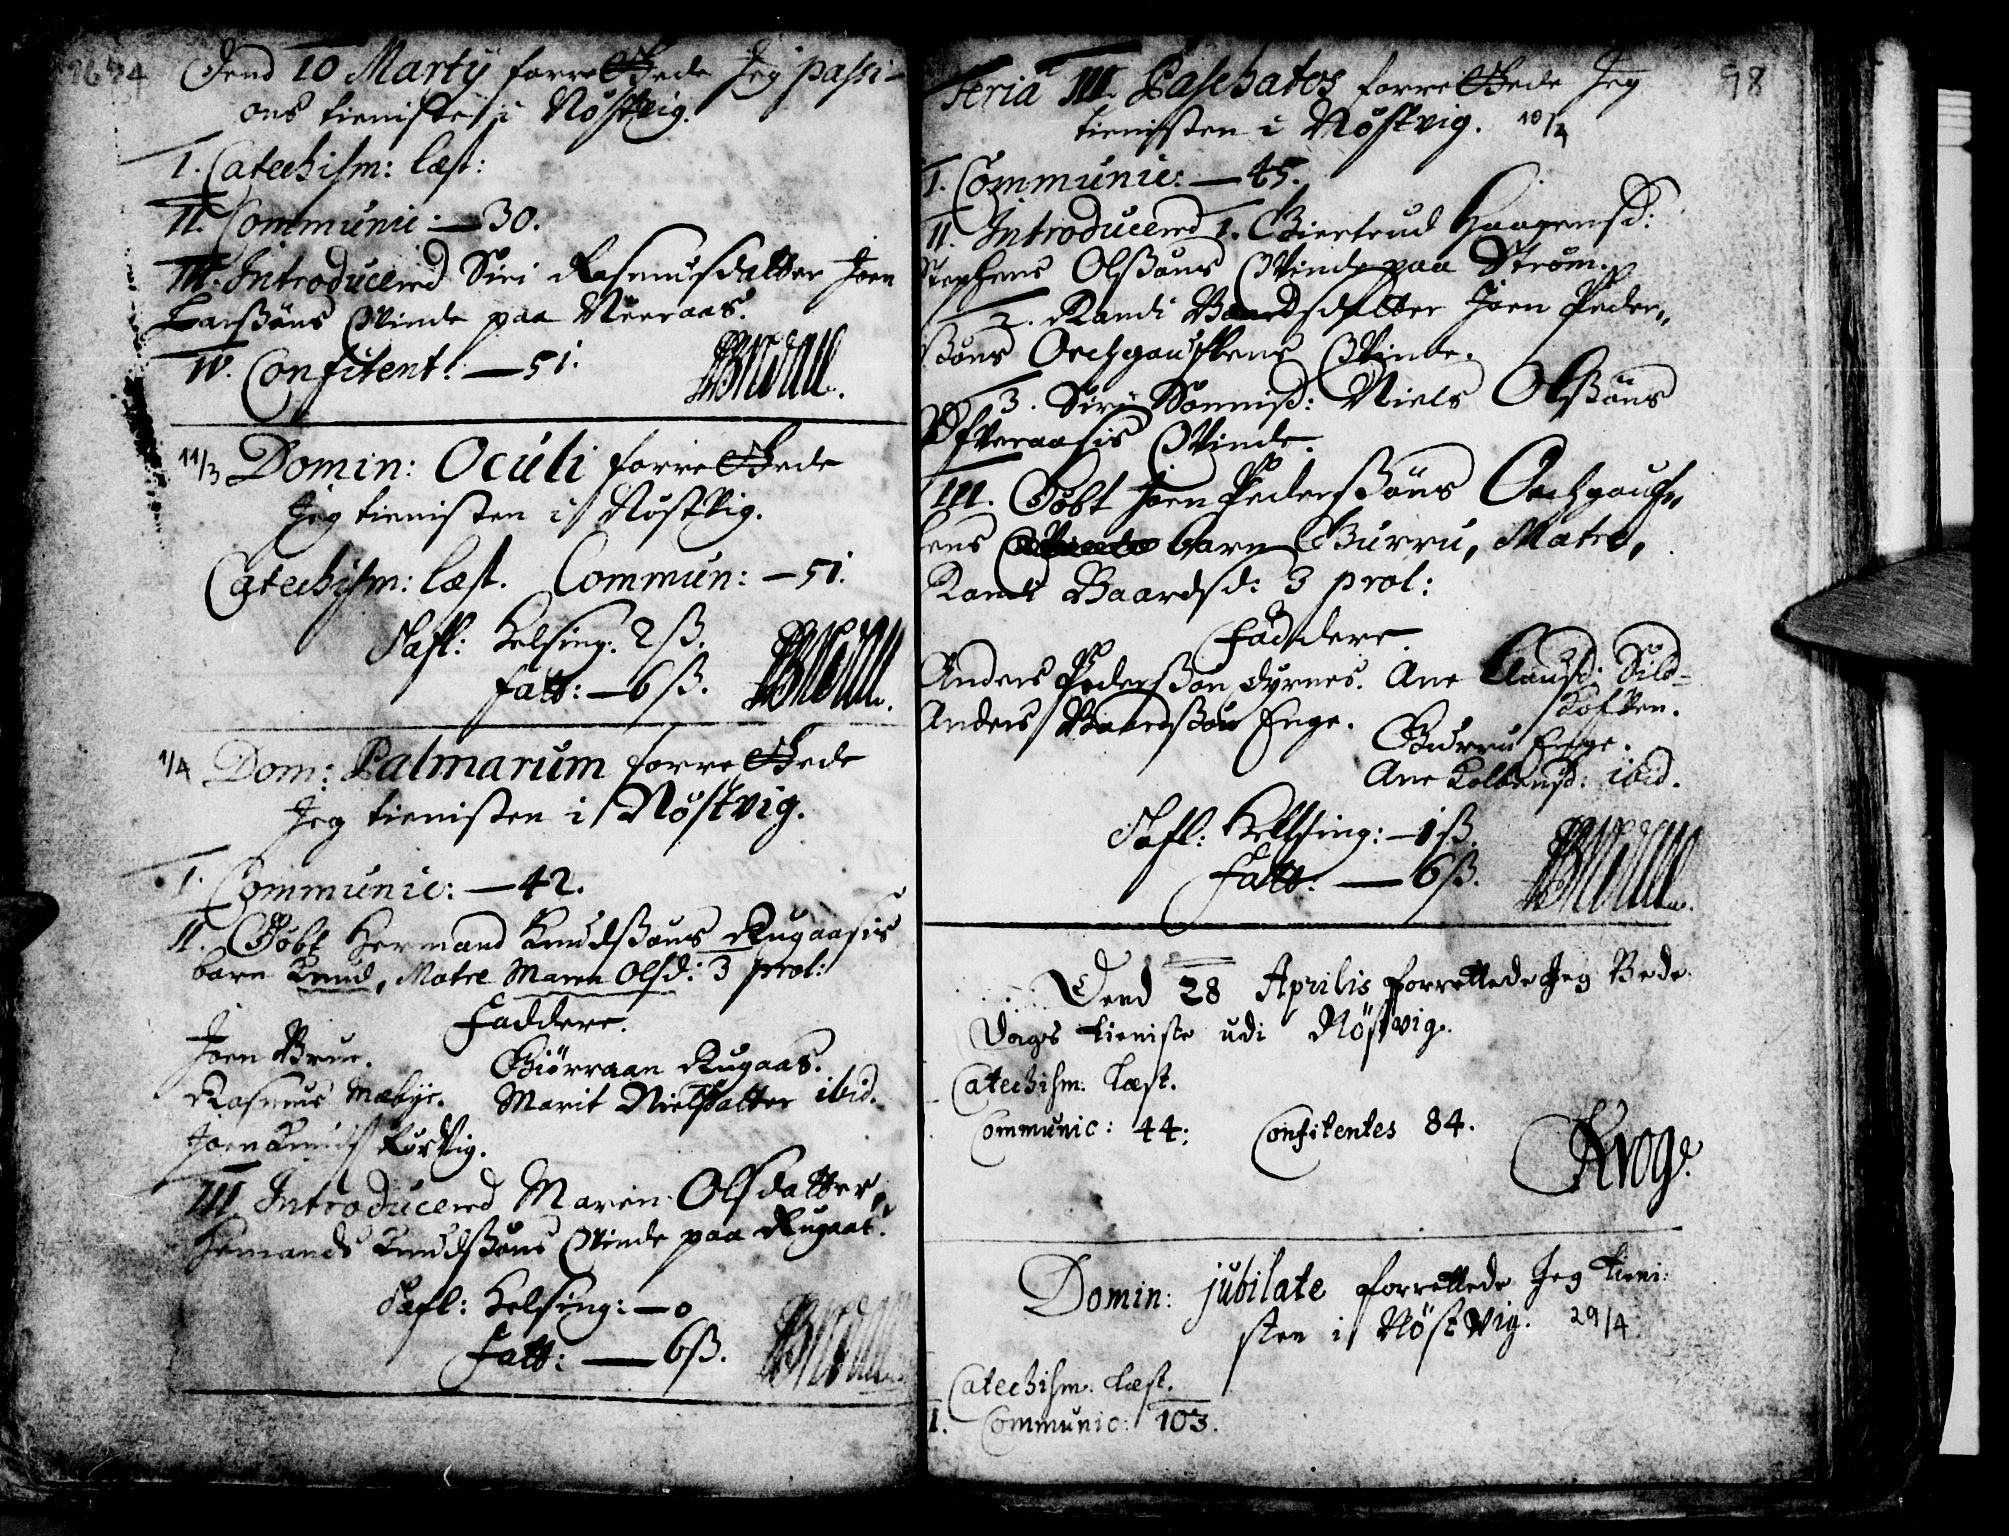 1694
Dend 10 Martÿ forrettede Jeg passi-
ons tieniste i Nøstvig.
I. Catechism: læst:
II. Communic: — 30.
III. Introducered Siri Rasmusdatter Joen
Larssøns Qvinde paa Neeraas.
IV. Confitent: — 51.
11/3 Domin: Oculi forrettede
Jeg tienisten i Nøstvig.
Catechism: læst. Commun: — 51.
Tafl: Helsing: 2 ß.
Fatt: — 6 ß.
1/4 Dom: Palmarum forrettede
Jeg tienisten i Nøstvig.
I. Communic: — 42.
II. Døbt Hermand Knudssøns Rugaasis
barn Knud, Matre Maren Olsd: 3 prol:
Faddere.
Joen Brue. Giørraan Rugaas.
Rasmus Mæbye. Marit Nielsdatter ibid.
Joen Knuds Korsvig.
III Introducered Maren Olsdatter,
Hermands Knudssøns Qvinde paa Rugaas.
Tafl: Helsing: — 0
Fatt: — 6 ß.
98
Feria III. Paschatos forrettede Jeg
tienisten i Nøstvig. 10/4
I. Communic: — 45.
II. Introducered 1. Giertrud Haagensd:
Stephens Olssøns Qvinde paa Strøm.
2. Randi Baardsdatter Joen Peder-
ssøns Oechgauschens Qvinde.
3. Siri Tønnisd: Niels Olssøns
Ofveraasis Qvinde.
III. Døbt Joen Pederssøns Oechgausch-
ens barn Gurru, Matre,
Randi Baardsd: 3 prol:
Faddere.
Anders Pederssøn Dyrnes. Ane Clausd: Sild-
Anders Baardssøn Enge. Kofven.
Gurru Enge.
Ane Kolbensd: ibid.
Tafl: Helsing: — 1 ß.
Fatt: — 6 ß.
Dend 28 Aprilis forrettede Jeg Bede
dags tieniste udi Nøstvig.
Catechism: Læst.
Communic: 44: Confitentes 84.
Krog.
Domin: jubilate forrettede Jeg tieni:
sten i Nøstvig. 29/4
Catechism: Læst.
I. Communic: 103.